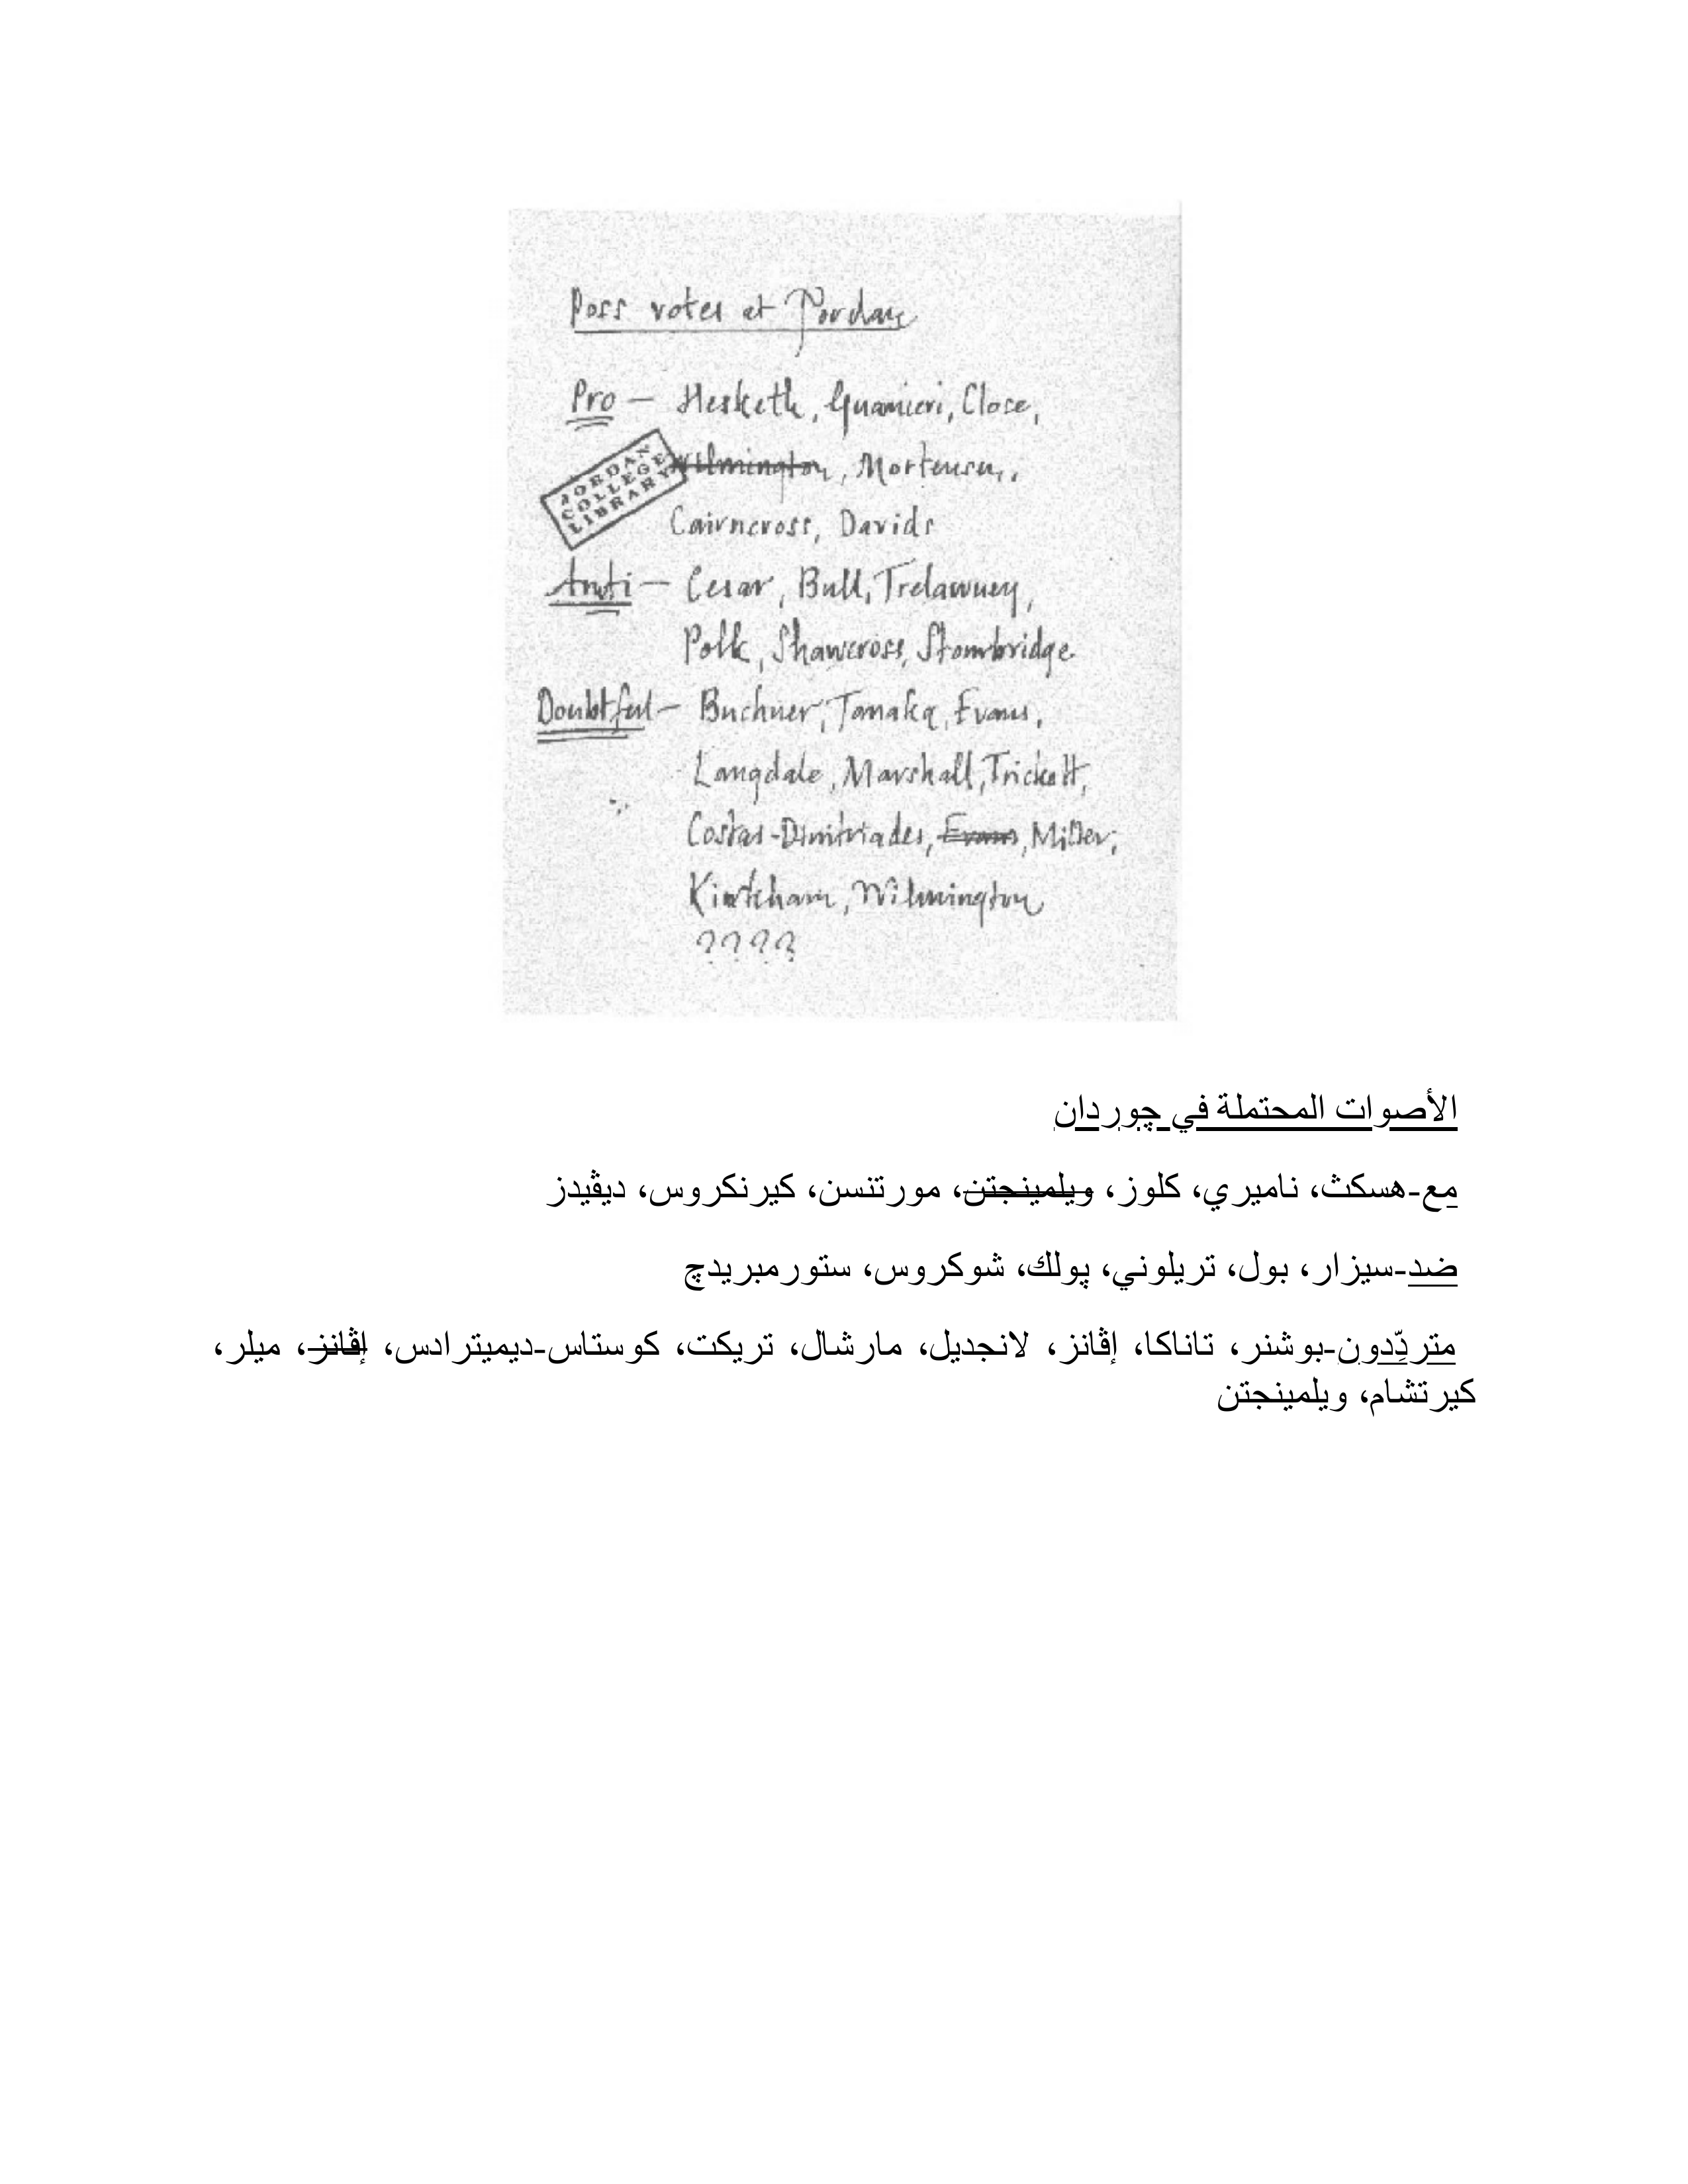 Poss votes at Jordan
Pro — Hesketh, Guarnieri, Close,
Wilmington, Mortensen,
JORDAN
COLLEGE
LIBRARY
Cairncross, Davids
Anti — Cesar, Bull, Trelawney,
Polk, Shawcross, Stormbridge
Doubtful — Buchner, Tanaka, Evans,
Langdale, Marshall, Trickett,
Costas-Dimitriades, Evans, Miller,
Kirkham, Wilmington
????
الأصوات المحتملة في چوردان
مع-هسكث، ناميري، كلوز، ويلمينجتن، مورتنسن، كيرنكروس، ديڤيدز
ضد-سيزار، بول، تريلوني، پولك، شوكروس، ستورمبريدچ
متردِّدون-بوشنر، تاناكا، إڤانز، لانجديل، مارشال، تريكت، كوستاس-ديميترادس، إڤانز، ميلر،
كيرتشام، ويلمينجتن